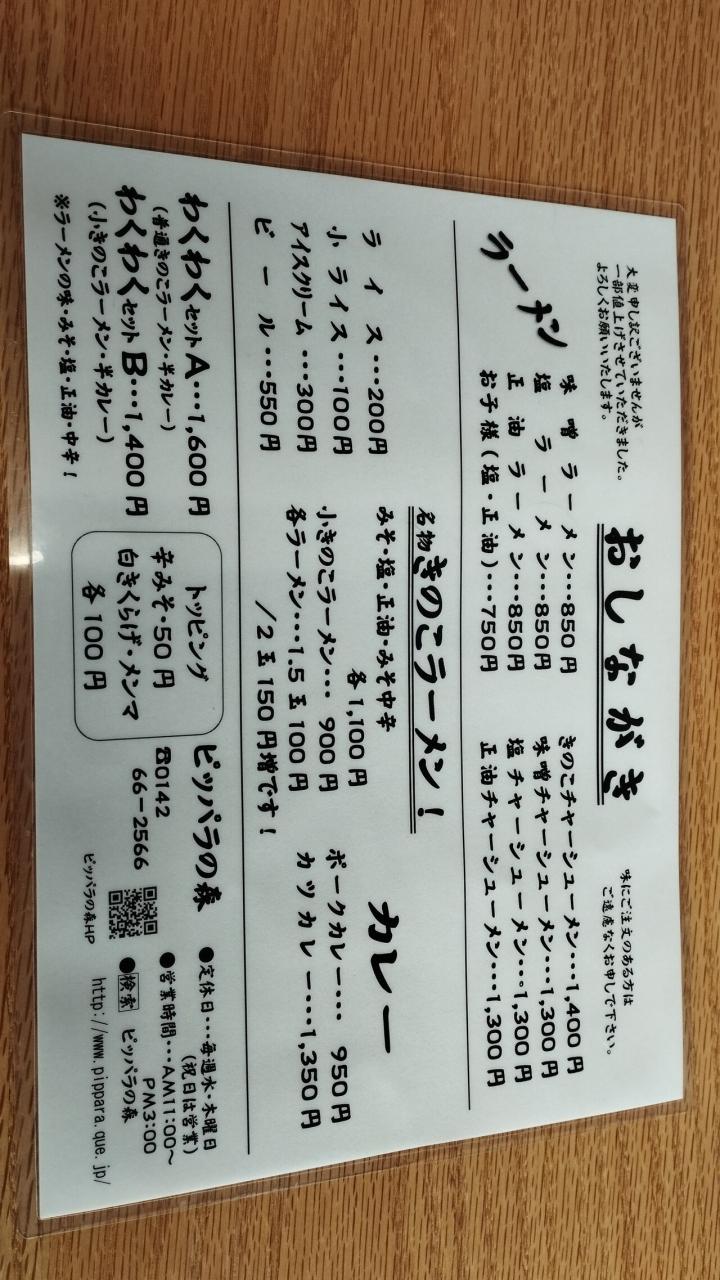 大変申し訳ございませんが
一部値上げさせていただきました。
よろしくお願いいたします。
おしながき
味にご注文のある方は
ご遠慮なくお申しで下さい。
ラーメン
味噌ラーメン･･･850円
塩ラーメン･･･850円
正油ラーメン･･･850円
お子様(塩・正油)･･･750円
きのこチャーシューメン･･･1,400円
味噌チャーシューメン･･･1,300円
塩チャーシューメン･･･1,300円
正油チャーシューメン･･･1,300円
ライス･･･200円
小ライス･･･100円
アイスクリーム･･･300円
ビール･･･550円
名物きのこラーメン!
みそ・塩・正油・みそ中辛
各1,100円
小きのこラーメン･･･900円
各ラーメン･･･1.5玉100円
/2玉150円増です!
カレー
ポークカレー･･･950円
カツカレー･･･1,350円
わくわくセットA･･･1,600円
(普通きのこラーメン・半カレー)
わくわくセットB･･･1,400円
(小きのこラーメン・半カレー)
※ラーメンの味・みそ・塩・正油・中辛!
トッピング
辛みそ・50円
白きくらげ・メンマ
各100円
ピッパラの森
☎0142
66-2566
ピッパラの森HP
●定休日･･･毎週水・木曜日
(祝日は営業)
●営業時間･･･AM11:00~
PM3:00
●検索 ピッパラの森
http://www.pippara.que.jp/